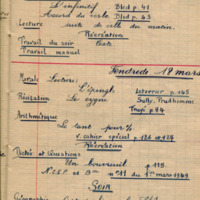 L'infinitif Bled p. 41
Accord du verbe Bled p. 43
Lecture suite de celle du matin.
Récréation
Travail du soir Texte
Travail manuel
Vendredi 17 mars
Morale Lecture:
L'épingle p. 165
Récitation Le cygne Sully Prudhomme
p. 74
Arithmétique
Le tant pour %
cahier spécial p. 126 et 127
Récréation
Dictée et Questions
Un bouvreuil p. 195.
N° 11 du 1er mars 1949
Soir